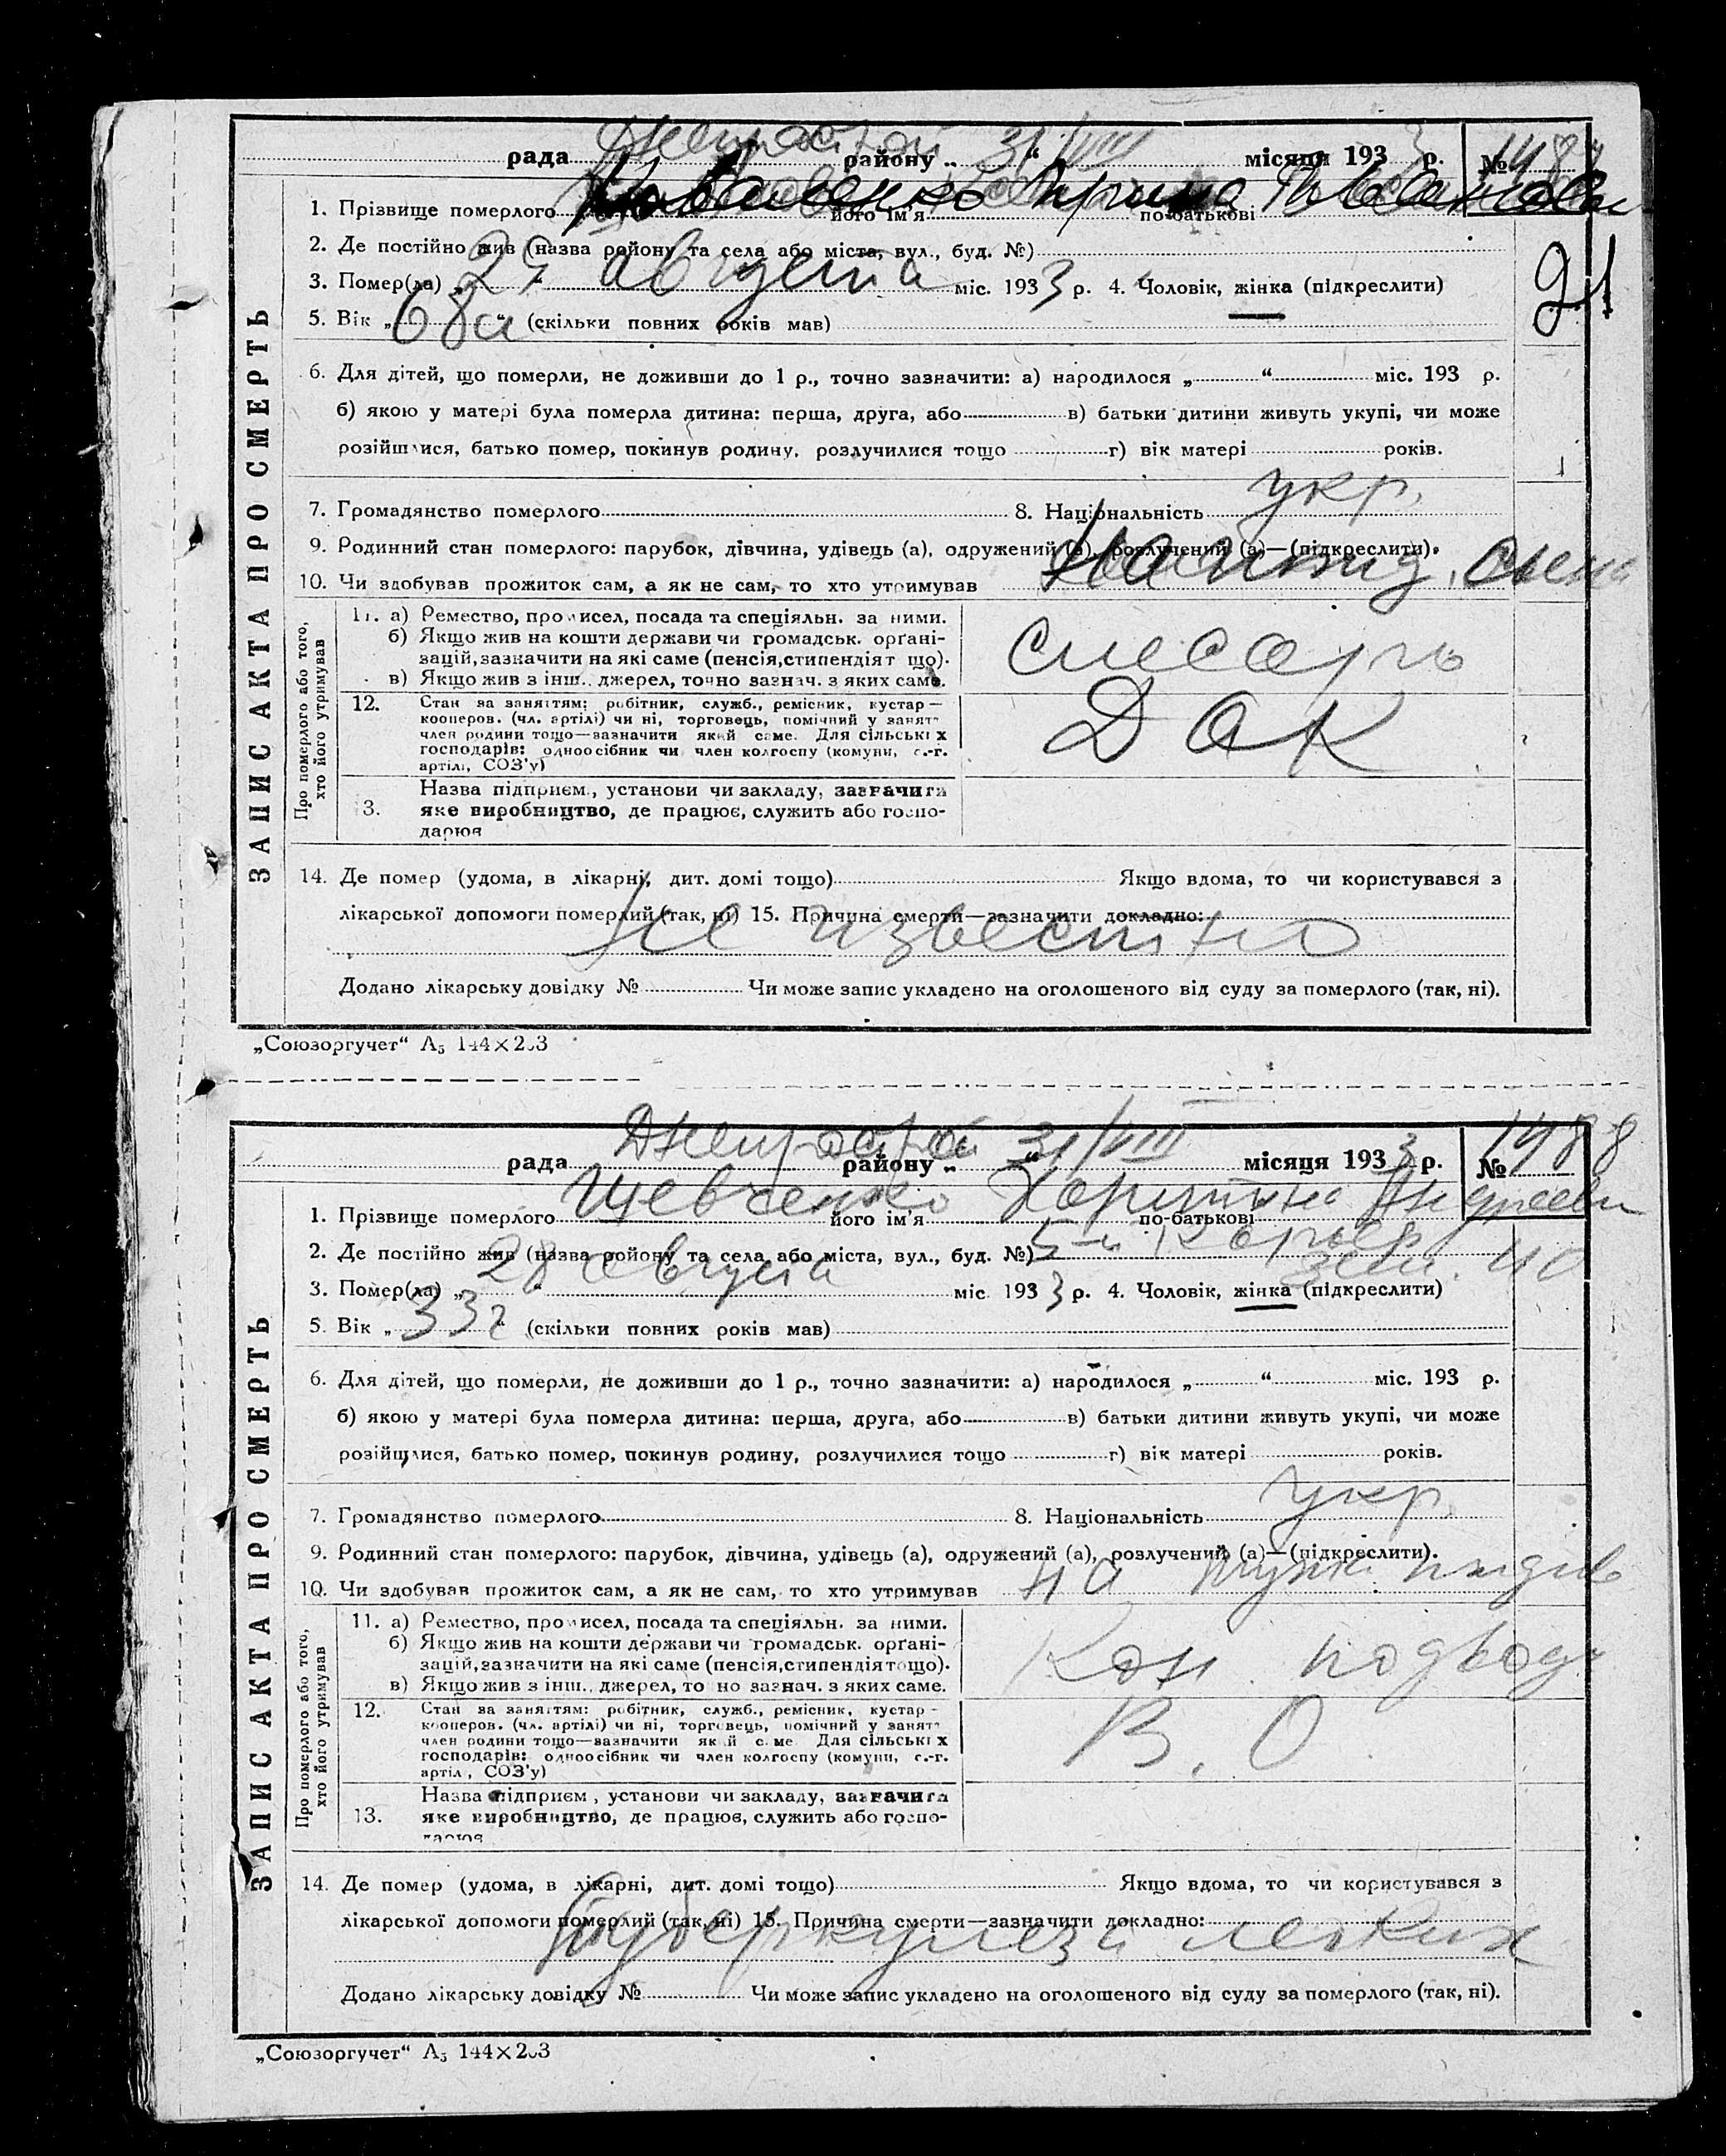 рада Днепрострой району „ 31/VIII “ місяця 1933 р. № 1487
1. Прізвище померлого Коваленко його ім'я Ирина по-батькові
2. Де постійно жив (назва району та села або міста, вул., буд. №)
3. Помер(ла) „ 27 августа міс. 1933 р. 4. Чоловік, жінка (підкреслити)
91
5. Вік „ 68 “ (скільки повних років мав)
6. Для дітей, що померли, не доживши до 1 р., точно зазначити: а) народилося „ “ міс. 193 р.
б) якою у матері була померла дитина: перша, друга, або в) батьки дитини живуть укупі, чи може
розійшлися, батько помер, покинув родину, розлучилися тощо г) вік матері років.
7. Громадянство померлого 8. Національність укр.
9. Родинний стан померлого: парубок, дівчина, удівець (а), одружений (а), розлучений (а)—(підкреслити).
10. Чи здобував прожиток сам, а як не сам, то хто утримував На ижд.
ЗАПИС АКТА ПРО СМЕРТЬ
Про померлого або того, хто його утримував
11. а) Ремество, промисел, посада та спеціяльн. за ними.
б) Якщо жив на кошти держави чи громадськ. орґані-
зацій, зазначити на які саме (пенсія, стипендія т що).
в) Якщо жив з інш. джерел, точно зазнач. з яких саме.
слесарь
12. Стан за заняттям: робітник, служб., ремісник, кустар—
кооперов. (чл. артілі) чи ні, торговець, помічний у занятт
член родини тощо—зазначити який саме. Для сільських
господарів: одноосібник чи член колгоспу (комуни, с.-г.
артілі, СОЗ'у)
ДАК
13. Назва підприєм., установи чи закладу, зазначити
яке виробництво, де працює, служить або госпо-
дарює
14. Де помер (удома, в лікарні, дит. домі тощо) Якщо вдома, то чи користувався з
лікарської допомоги померлий (так, ні) 15. Причина смерти—зазначити докладно:
Не известно
Додано лікарську довідку № Чи може запис укладено на оголошеного від суду за померлого (так, ні).
„Союзоргучет“ А5 144×203
рада Днепрострой району „ 31/VIII “ місяця 1933 р. № 1488
1. Прізвище померлого Шевченко його ім'я Харитина по-батькові Андреевн
2. Де постійно жив (назва району та села або міста, вул., буд. №) 5-й Карьер
зем. 40
3. Помер(ла) „ 28 августа “ міс 1933 р. 4. Чоловік, жінка (підкреслити)
5. Вік „ 33 г “ (скільки повних років мав)
6. Для дітей, що померли, не доживши до 1 р., точно зазначити: а) народилося „ “ міс. 193 р.
б) якою у матері була померла дитина: перша, друга, або в) батьки дитини живуть укупі, чи може
розійшлися, батько помер, покинув родину, розлучилися тощо г) вік матері років.
7. Громадянство померлого 8. Національність укр.
9. Родинний стан померлого: парубок, дівчина, удівець (а), одружений (а), розлучений (а)—(підкреслити).
10. Чи здобував прожиток сам, а як не сам, то хто утримував На
ЗАПИС АКТА ПРО СМЕРТЬ
Про померлого або того, хто його утримував
11. а) Ремество, промисел, посада та спеціяльн. за ними.
б) Якщо жив на кошти держави чи громадськ. орґані-
зацій, зазначити на які саме (пенсія, стипендія тощо).
в) Якщо жив з інш. джерел, то но зазнач. з яких саме.
12. Стан за заняттям: робітник, служб., ремісник, кустар-
кооперов. (чл. артілі) чи ні, торговець, помічний у занятт
член родини тощо—зазначити який саме Для сільських
господарів: одноосібник чи член колгоспу (комуни, с.-г.
артіл, СОЗ'у)
В. О.
13. Назва підприєм, установи чи закладу, зазначити
яке виробництво, де працює, служить або госпо-
дарює
14. Де помер (удома, в лікарні, дит. домі тощо) Якщо вдома, то чи користувався з
лікарської допомоги померлий (так, ні) 15. Причина смерти—зазначити докладно:
Туберкулеза легких
Додано лікарську довідку № Чи може запис укладено на оголошеного від суду за померлого (так, ні).
„Союзоргучет“ А5 144×203